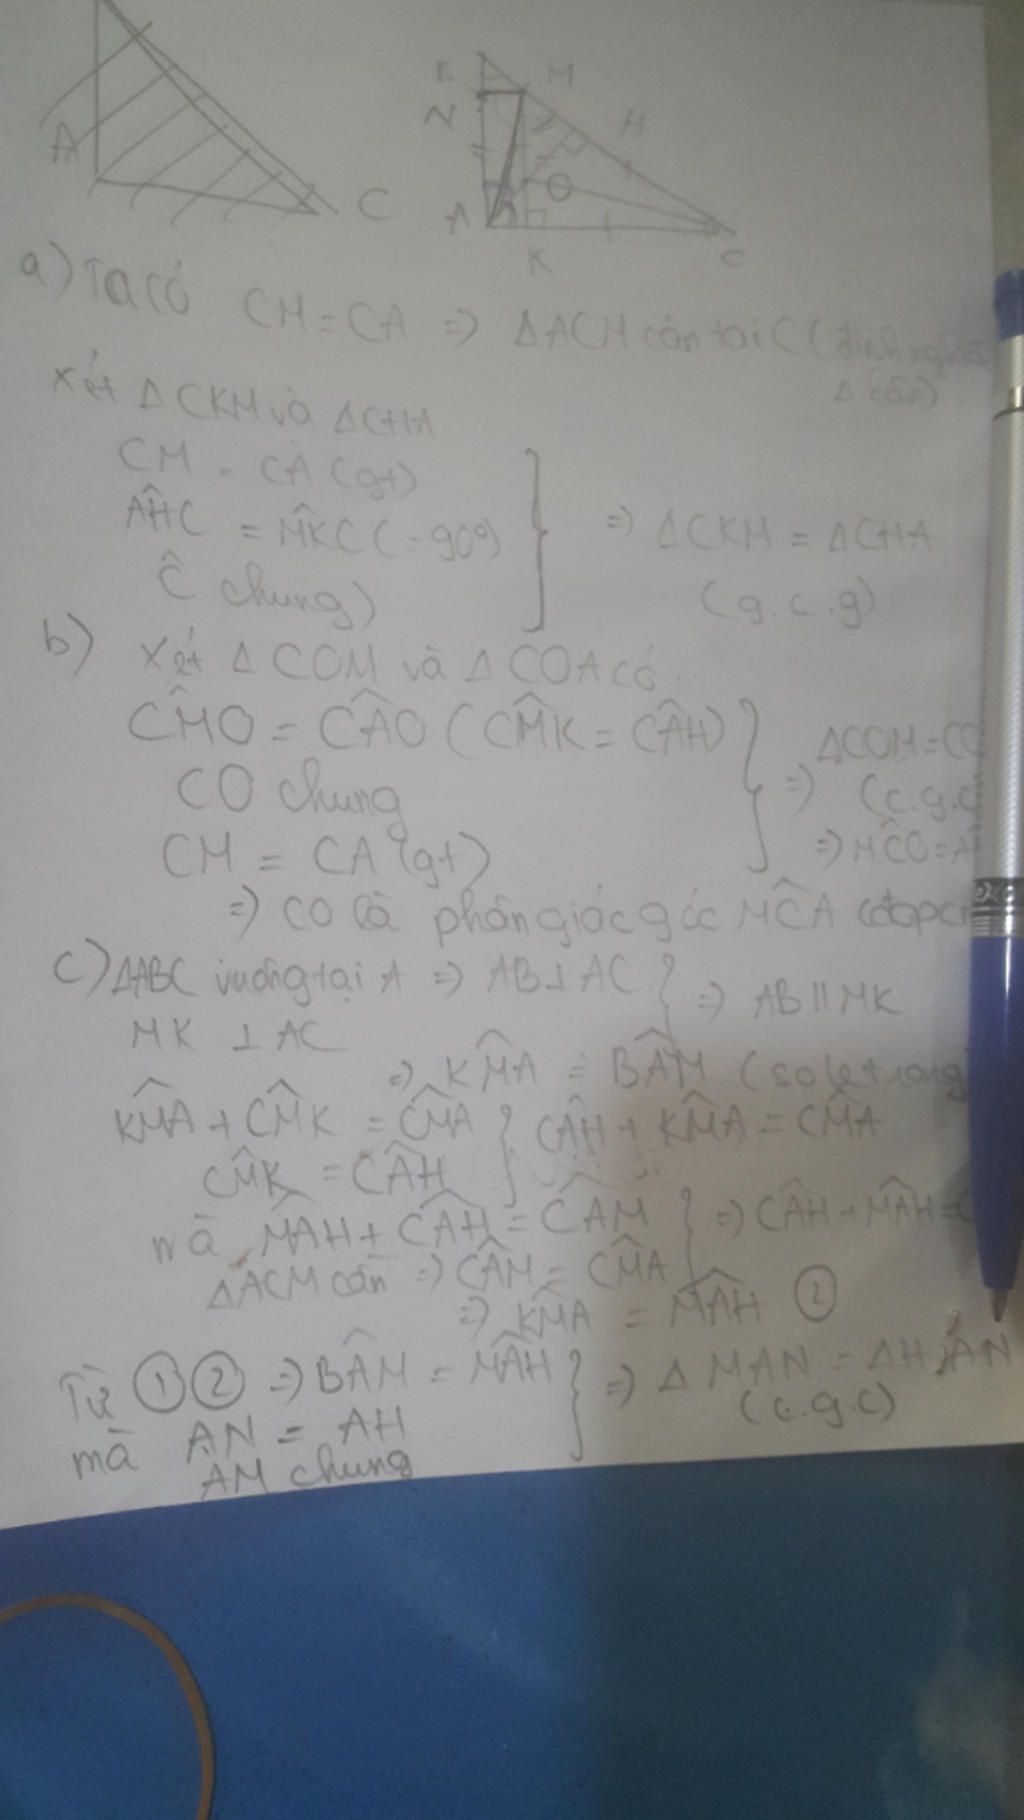 A
C
B
M
N
H
O
A
K
C
a) Ta có CM = CA => ΔACM cân tại C (định nghĩa
Δ cân)
Xét ΔCKM và ΔCHA
CM = CA (gt)
AĤC = MK̂C (=90°)
Ĉ chung)
=> ΔCKM = ΔCHA
(g.c.g)
b) Xét Δ COM và Δ COA có
CM̂O = CÂO (CM̂K = CÂH)
CO chung
CM = CA (gt)
=> ΔCOM = CO
(c.g.c
=> MĈO = A
=> CO là phân giác góc MĈA
c) ΔABC vuông tại A => AB ⊥ AC
MK ⊥ AC
=> AB // MK
=> KM̂A = BÂM (so le trong
KM̂A + CM̂K = CM̂A
CM̂K = CÂH
CÂH + KM̂A = CM̂A
mà MÂH + CÂH = CÂM
ΔACM cân => CÂM = CM̂A
=> CÂH + MÂH =
=> KM̂A = MÂH ②
Từ ① ② => BÂM = MÂH
mà AN = AH
AM chung
=> Δ MAN =
(c.g.c)